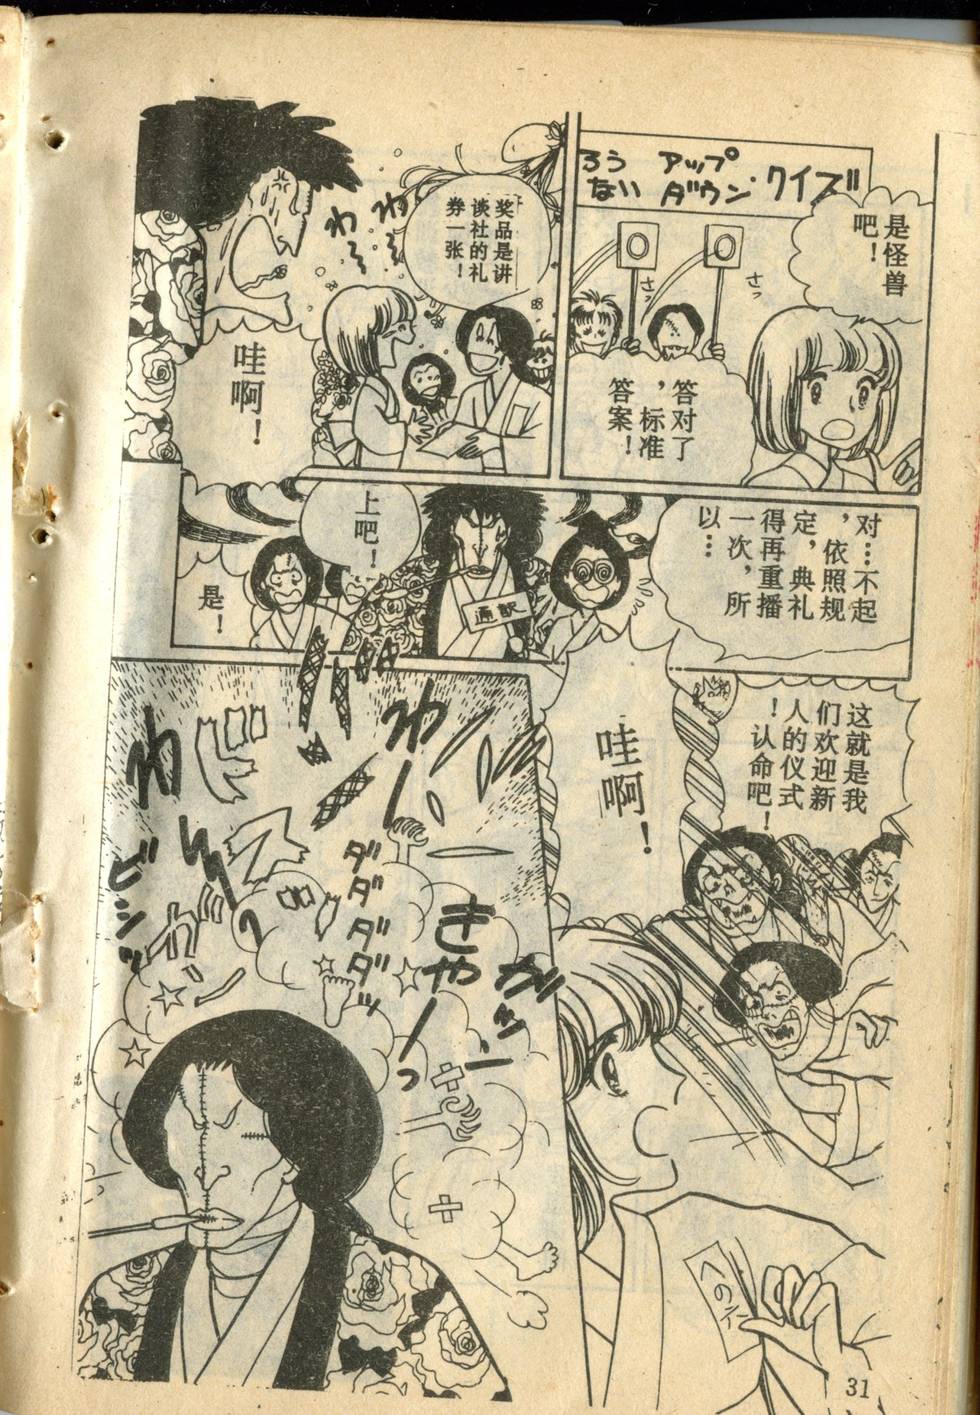 ろう アップ クイズ
ない ダウン
是怪兽
吧！
さっ
さっ
答对了
，标准
答案！
奖品是讲
谈社的礼
券一张！
わ～
わ～
哇啊！
对…不起
，依照规
定，典礼
得再重播
一次，所
以…
通訳
上吧！
是！
这就是我
们欢迎新
人的仪式
！认命吧！
哇啊！
わー
ダダダダダッ
きゃーっ
ガッ
ビシッ
31